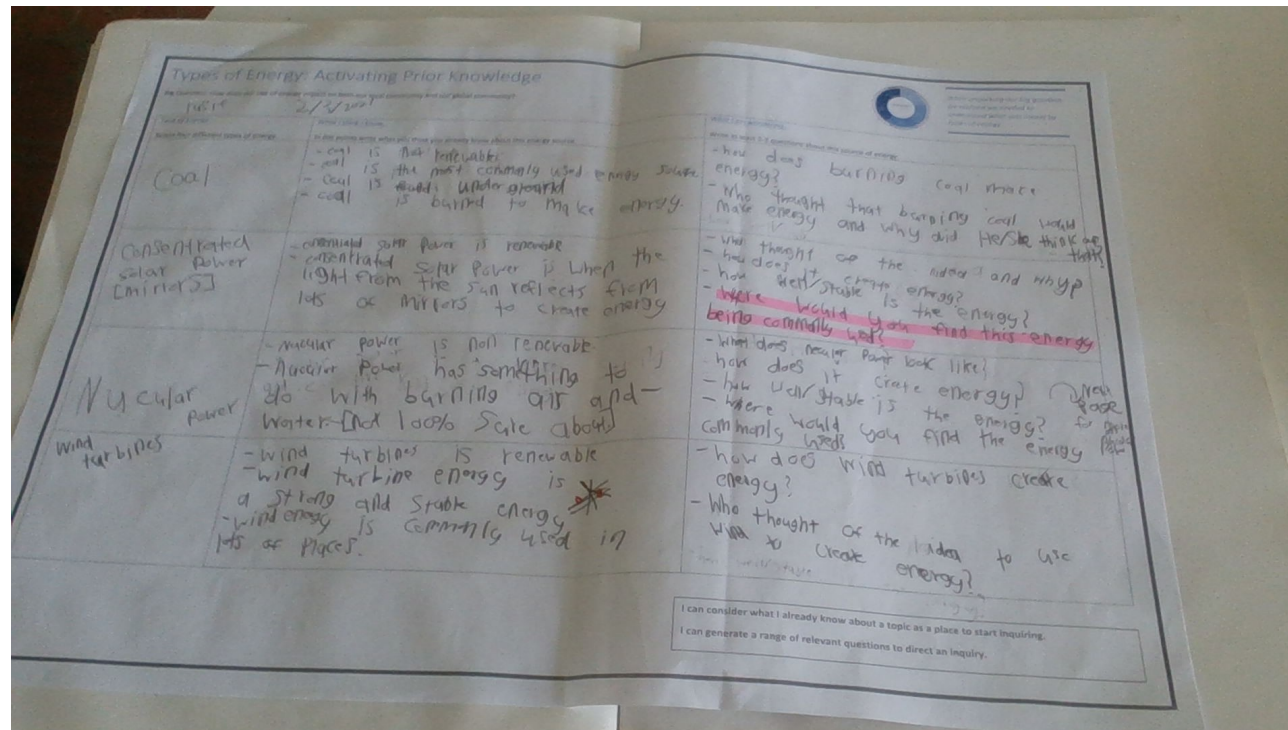 Types of Energy: Activating Prior Knowledge
2/3/2021
Coal
- coal is not renewable
- coal is the most commonly used energy
- coal is underground
- coal is burned to make energy.
- how does burning coal make
energy?
- Who thought that burning coal would
make energy and why did He/She think
Consentrated
solar power
[mirrors]
solar power is renewable
- consentrated solar power is when the
light from the sun reflects from
lots of mirrors to create energy
- who thought of the idea and why?
- how does it create energy?
- how well/stable is the energy?
- were would you find this energy
being commonly used?
Nucular
power
- nucular power is non renewable
- Nucular power has something to
do with burning air and
water [not 100% sure about]
- what does necular power look like?
how does it create energy?
- how well/stable is the energy?
- where would you find the energy
commonly used
wind
turbines
- wind turbines is renewable
- wind turbine energy is
a strong and stable energy
- wind energy is commonly used in
lots of places.
- how does wind turbines create
energy?
- Who thought of the idea to use
wind to create energy?
I can consider what I already know about a topic as a place to start inquiring.
I can generate a range of relevant questions to direct an inquiry.